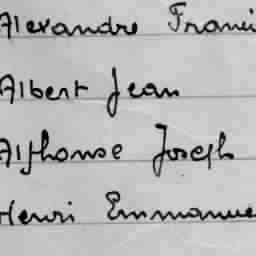 Alexandre Franci
Albert Jean
Alphonse Joseph
Henri Emmanue